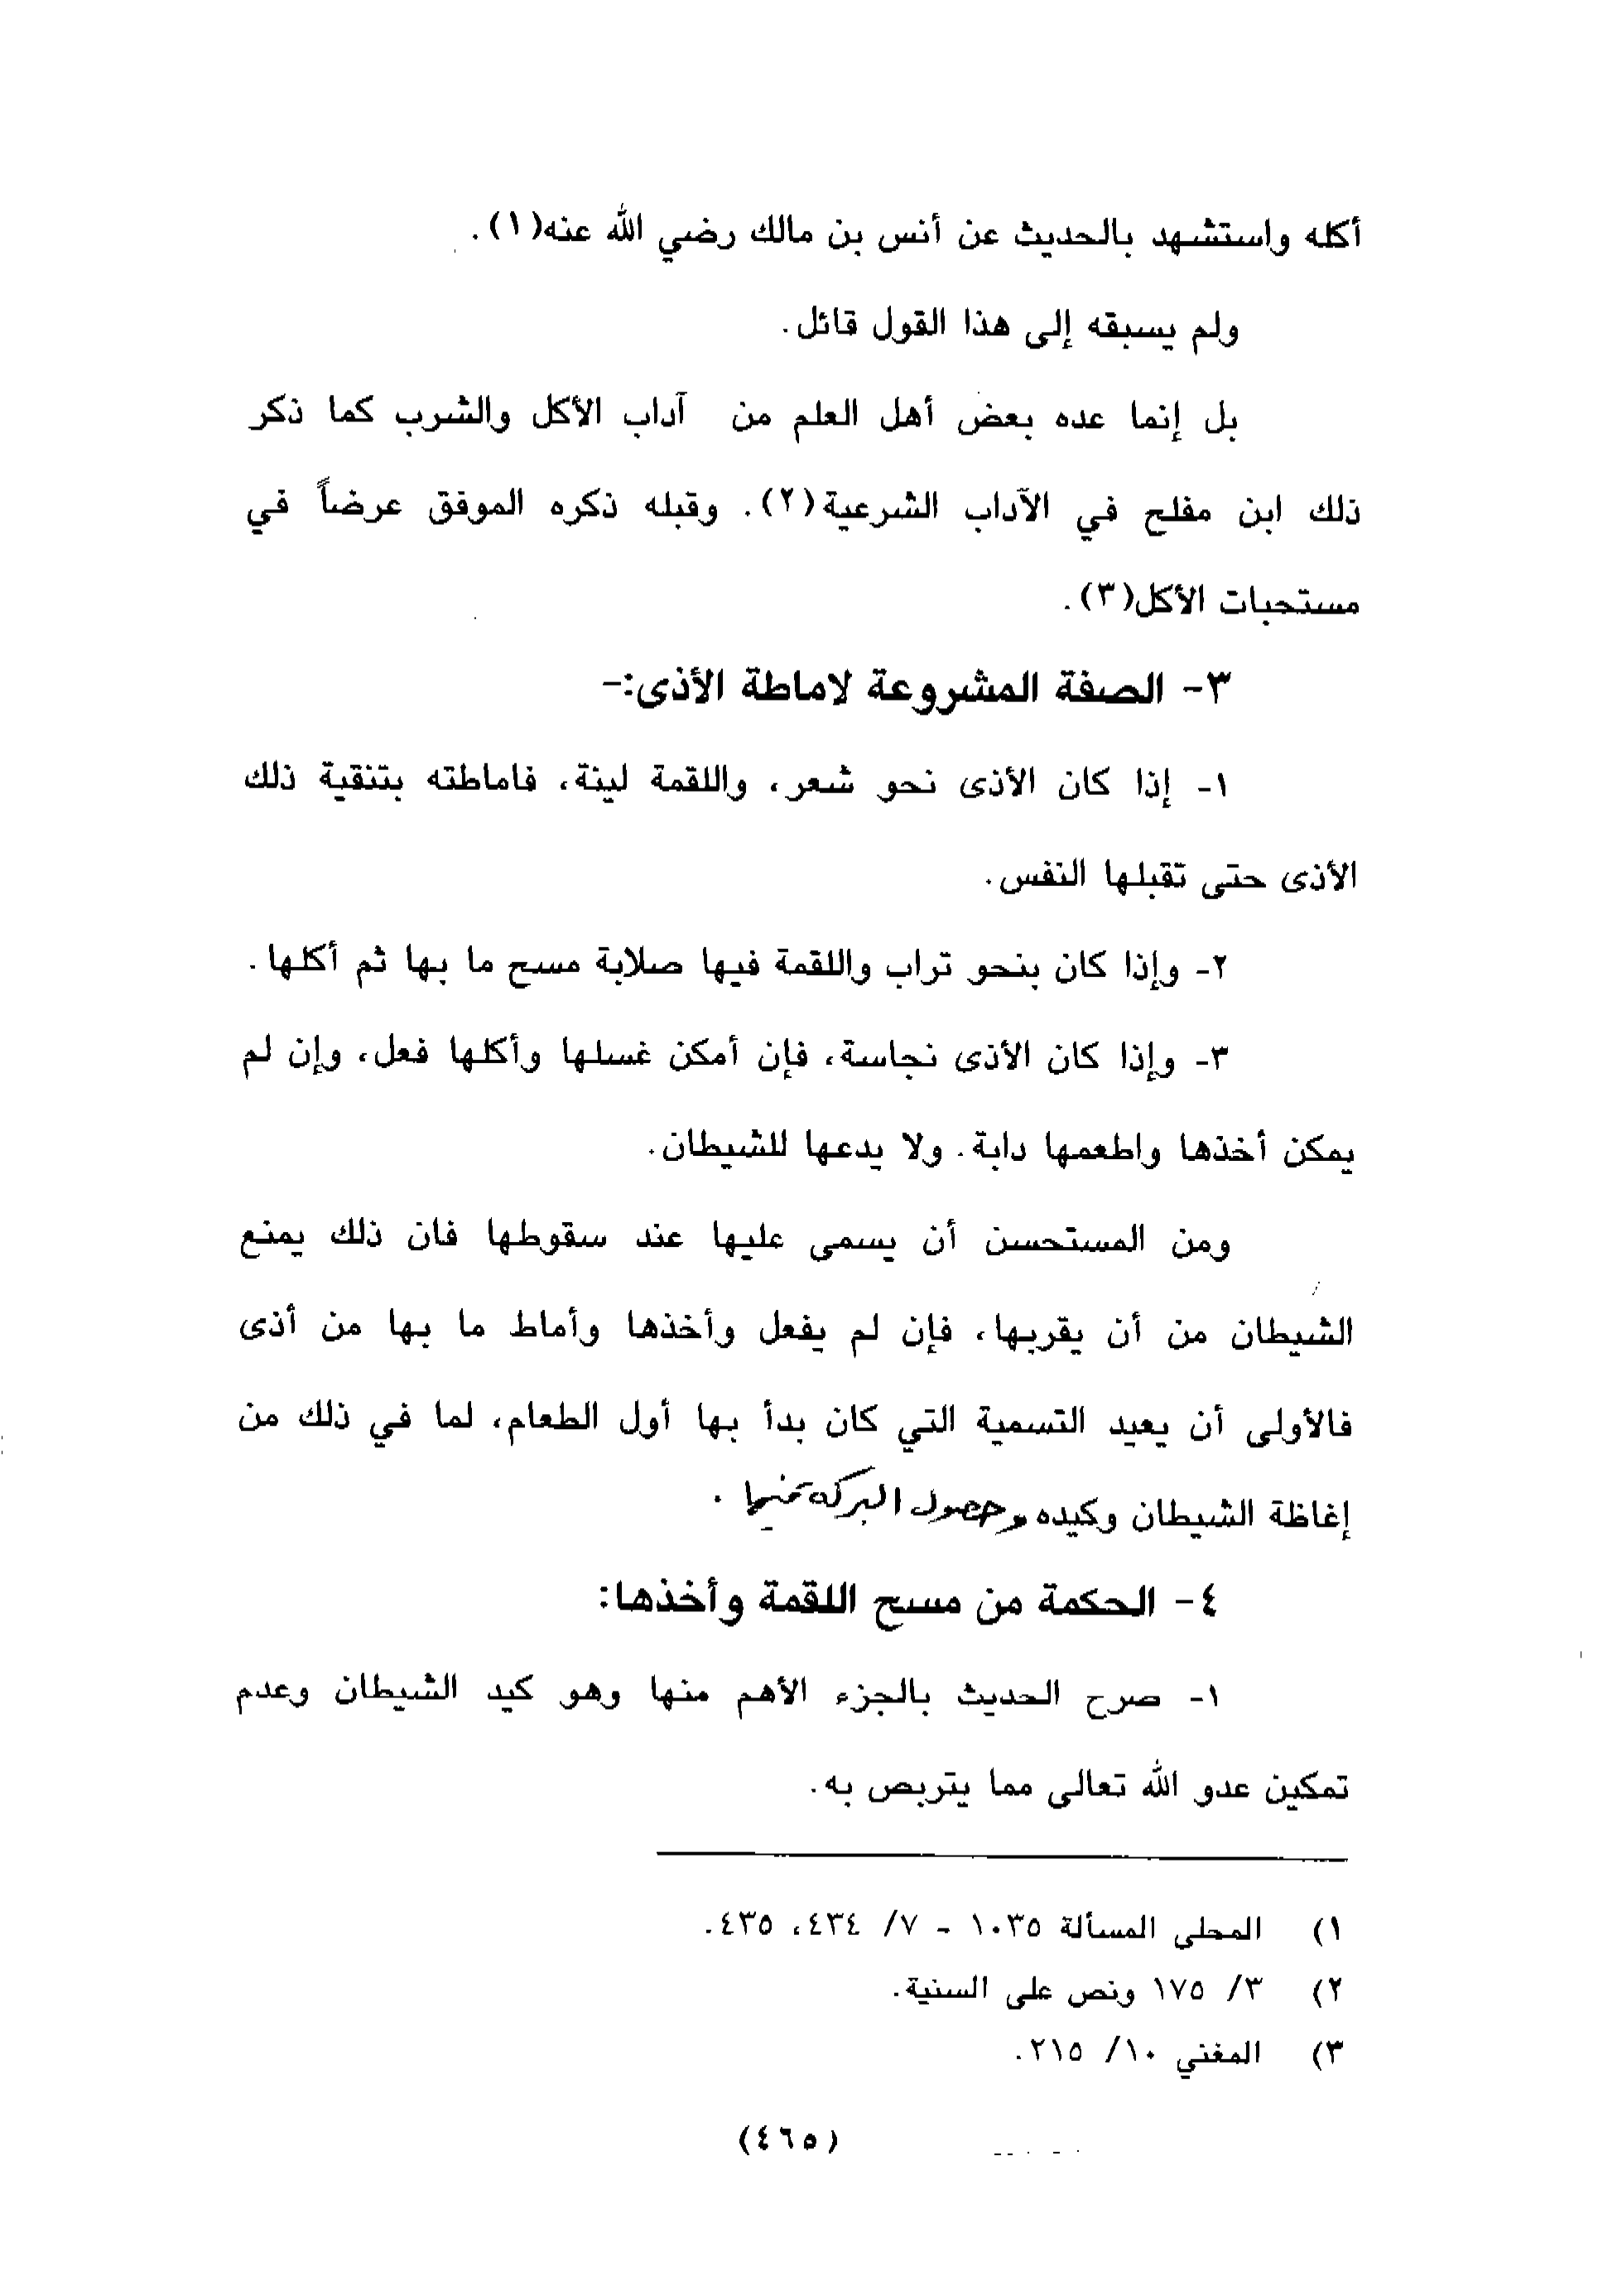 أكله واستشهد بالحديث عن أنس بن مالك رضي الله عنه(١).
ولم يسبقه إلى هذا القول قائل.
بل إنما عده بعض أهل العلم من آداب الأكل والشرب كما ذكر
ذلك ابن مفلح في الآداب الشرعية(٢). وقبله ذكره الموفق عرضاً في
مستحبات الأكل(٣).
٣- الصفة المشروعة لاماطة الأذى:-
١- إذا كان الأذى نحو شعر، واللقمة لينة، فاماطته بتنقية ذلك
الأذى حتى تقبلها النفس.
٢- وإذا كان بنحو تراب واللقمة فيها صلابة مسح ما بها ثم أكلها.
٣- وإذا كان الأذى نجاسة، فإن أمكن غسلها وأكلها فعل، وإن لم
يمكن أخذها واطعمها دابة. ولا يدعها للشيطان.
ومن المستحسن أن يسمى عليها عند سقوطها فان ذلك يمنع
الشيطان من أن يقربها، فإن لم يفعل وأخذها وأماط ما بها من أذى
فالأولى أن يعيد التسمية التي كان بدأ بها أول الطعام، لما في ذلك من
إغاظة الشيطان وكيده وحصول البركة .
٤- الحكمة من مسح اللقمة وأخذها:
١- صرح الحديث بالجزء الأهم منها وهو كيد الشيطان وعدم
تمكين عدو الله تعالى مما يتربص به.
١) المحلى المسألة ١٠٣٥ - ٧/ ٤٣٤، ٤٣٥.
٢) ٣/ ١٧٥ ونص على السنية.
٣) المغني ١٠/ ٢١٥.
(٤٦٥)